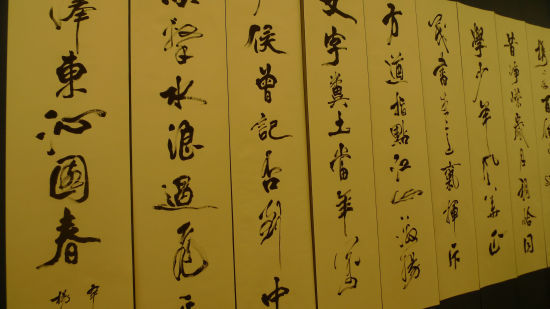 昔崢嶸歲月稠恰同
學少年風華正
茂書生意氣揮斥
方遒指點江山激揚
文字糞土當年萬
戶侯曾記否到中
擊水浪遏飛
澤東沁園春